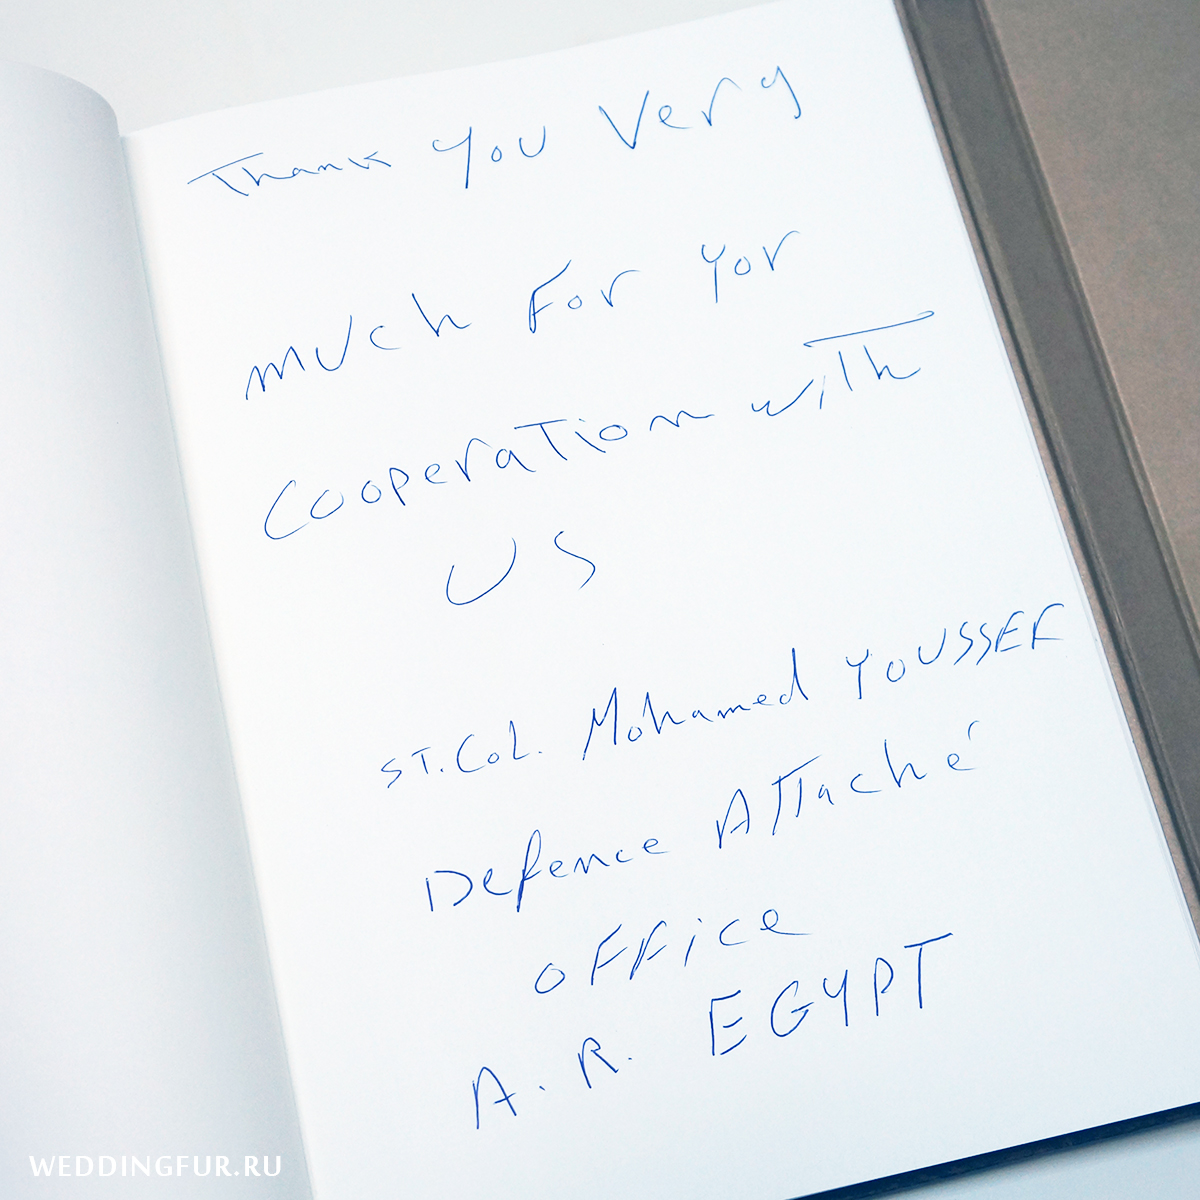 Thank you Very
much For yor
Cooperation with
US
ST.Col. Mohamed YOUSSEF
Defence Attaché
OFFice
A.R. EGYPT
WEDDINGFUR.RU